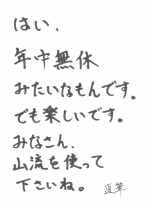 はい、
年中無休
みたいなもんです。
でも楽しいです。
みなさん、
山流を使って
下さいね。
直筆